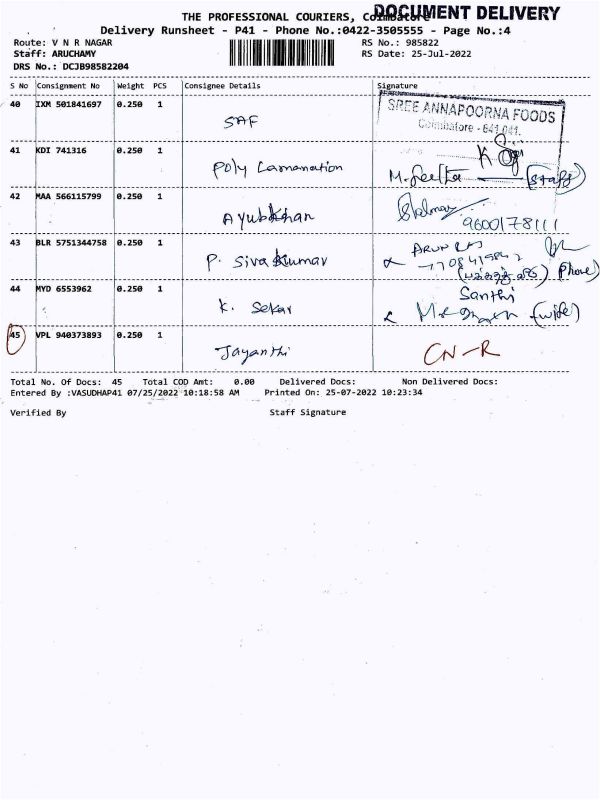 THE PROFESSIONAL COURIERS, Coimbatore
DOCUMENT DELIVERY
Delivery Runsheet - P41 - Phone No.:0422-3505555 - Page No.:4
Route: V N R NAGAR RS No.: 985822
Staff: ARUCHAMY RS Date: 25-Jul-2022
DRS No.: DCJB98582204
S No Consignment No Weight PCS Consignee Details Signature
40 IXM 501841697 0.250 1 SAF SREE ANNAPOORNA FOODS
Coimbatore - 641 041.
41 KDI 741316 0.250 1 Poly Lamanation M. Geetha (Staff)
42 MAA 566115799 0.250 1 Ayubkhan 9600178111
43 BLR 5751344758 0.250 1 P. Siva Kumar ARUN RAJ
Phone)
44 MYD 6553962 0.250 1 K. Sekar Santhi
(wife)
45 VPL 940373893 0.250 1 Jayanthi CN-R
Total No. Of Docs: 45 Total COD Amt: 0.00 Delivered Docs: Non Delivered Docs:
Entered By :VASUDHAP41 07/25/2022 10:18:58 AM Printed On: 25-07-2022 10:23:34
Verified By Staff Signature